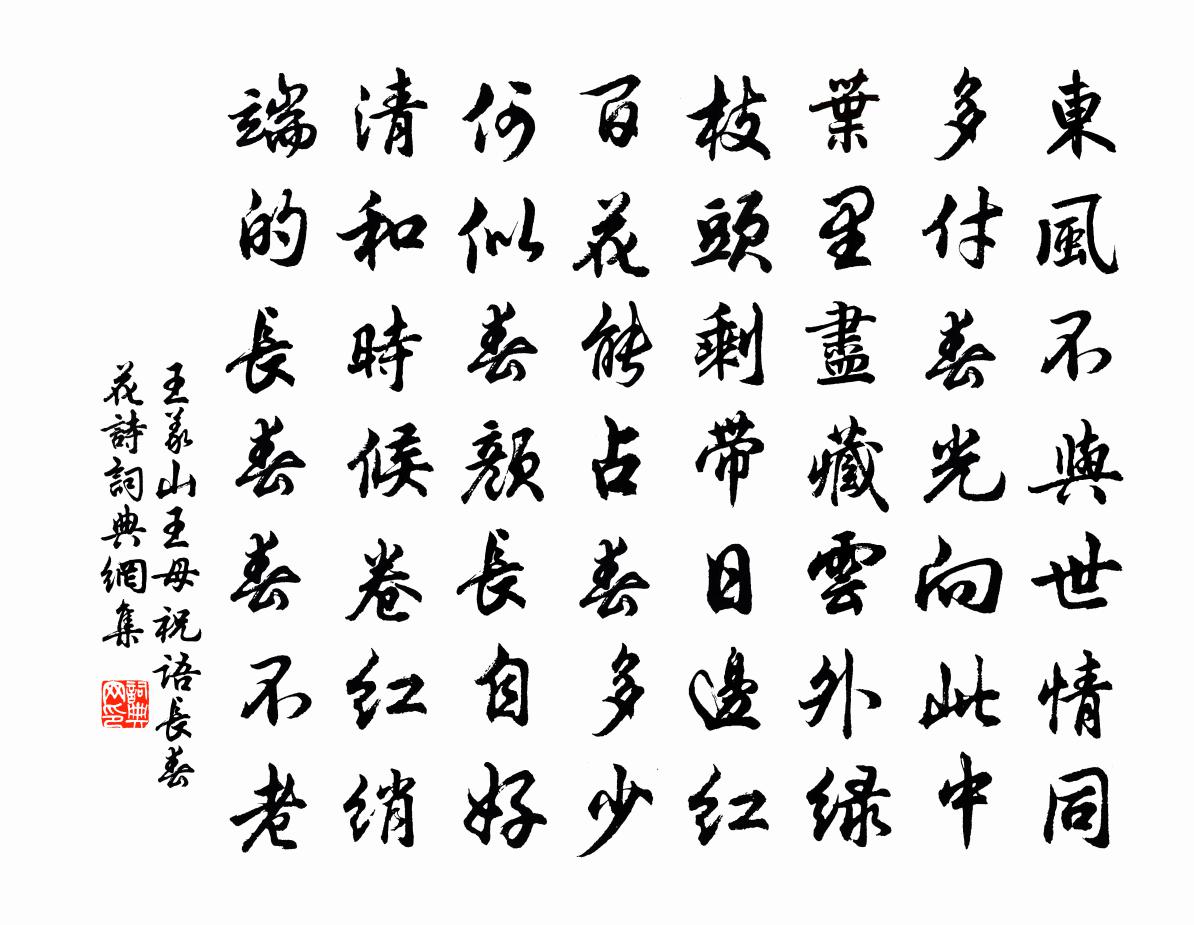 東風不與世情同
多付春光向此中
葉里盡藏雲外綠
枝頭剩帶日邊紅
百花能占春多少
何似春顏長自好
清和時候卷紅綃
端的長春春不老
王義山王母祝語長春
花詩詞典網集
詞典网印